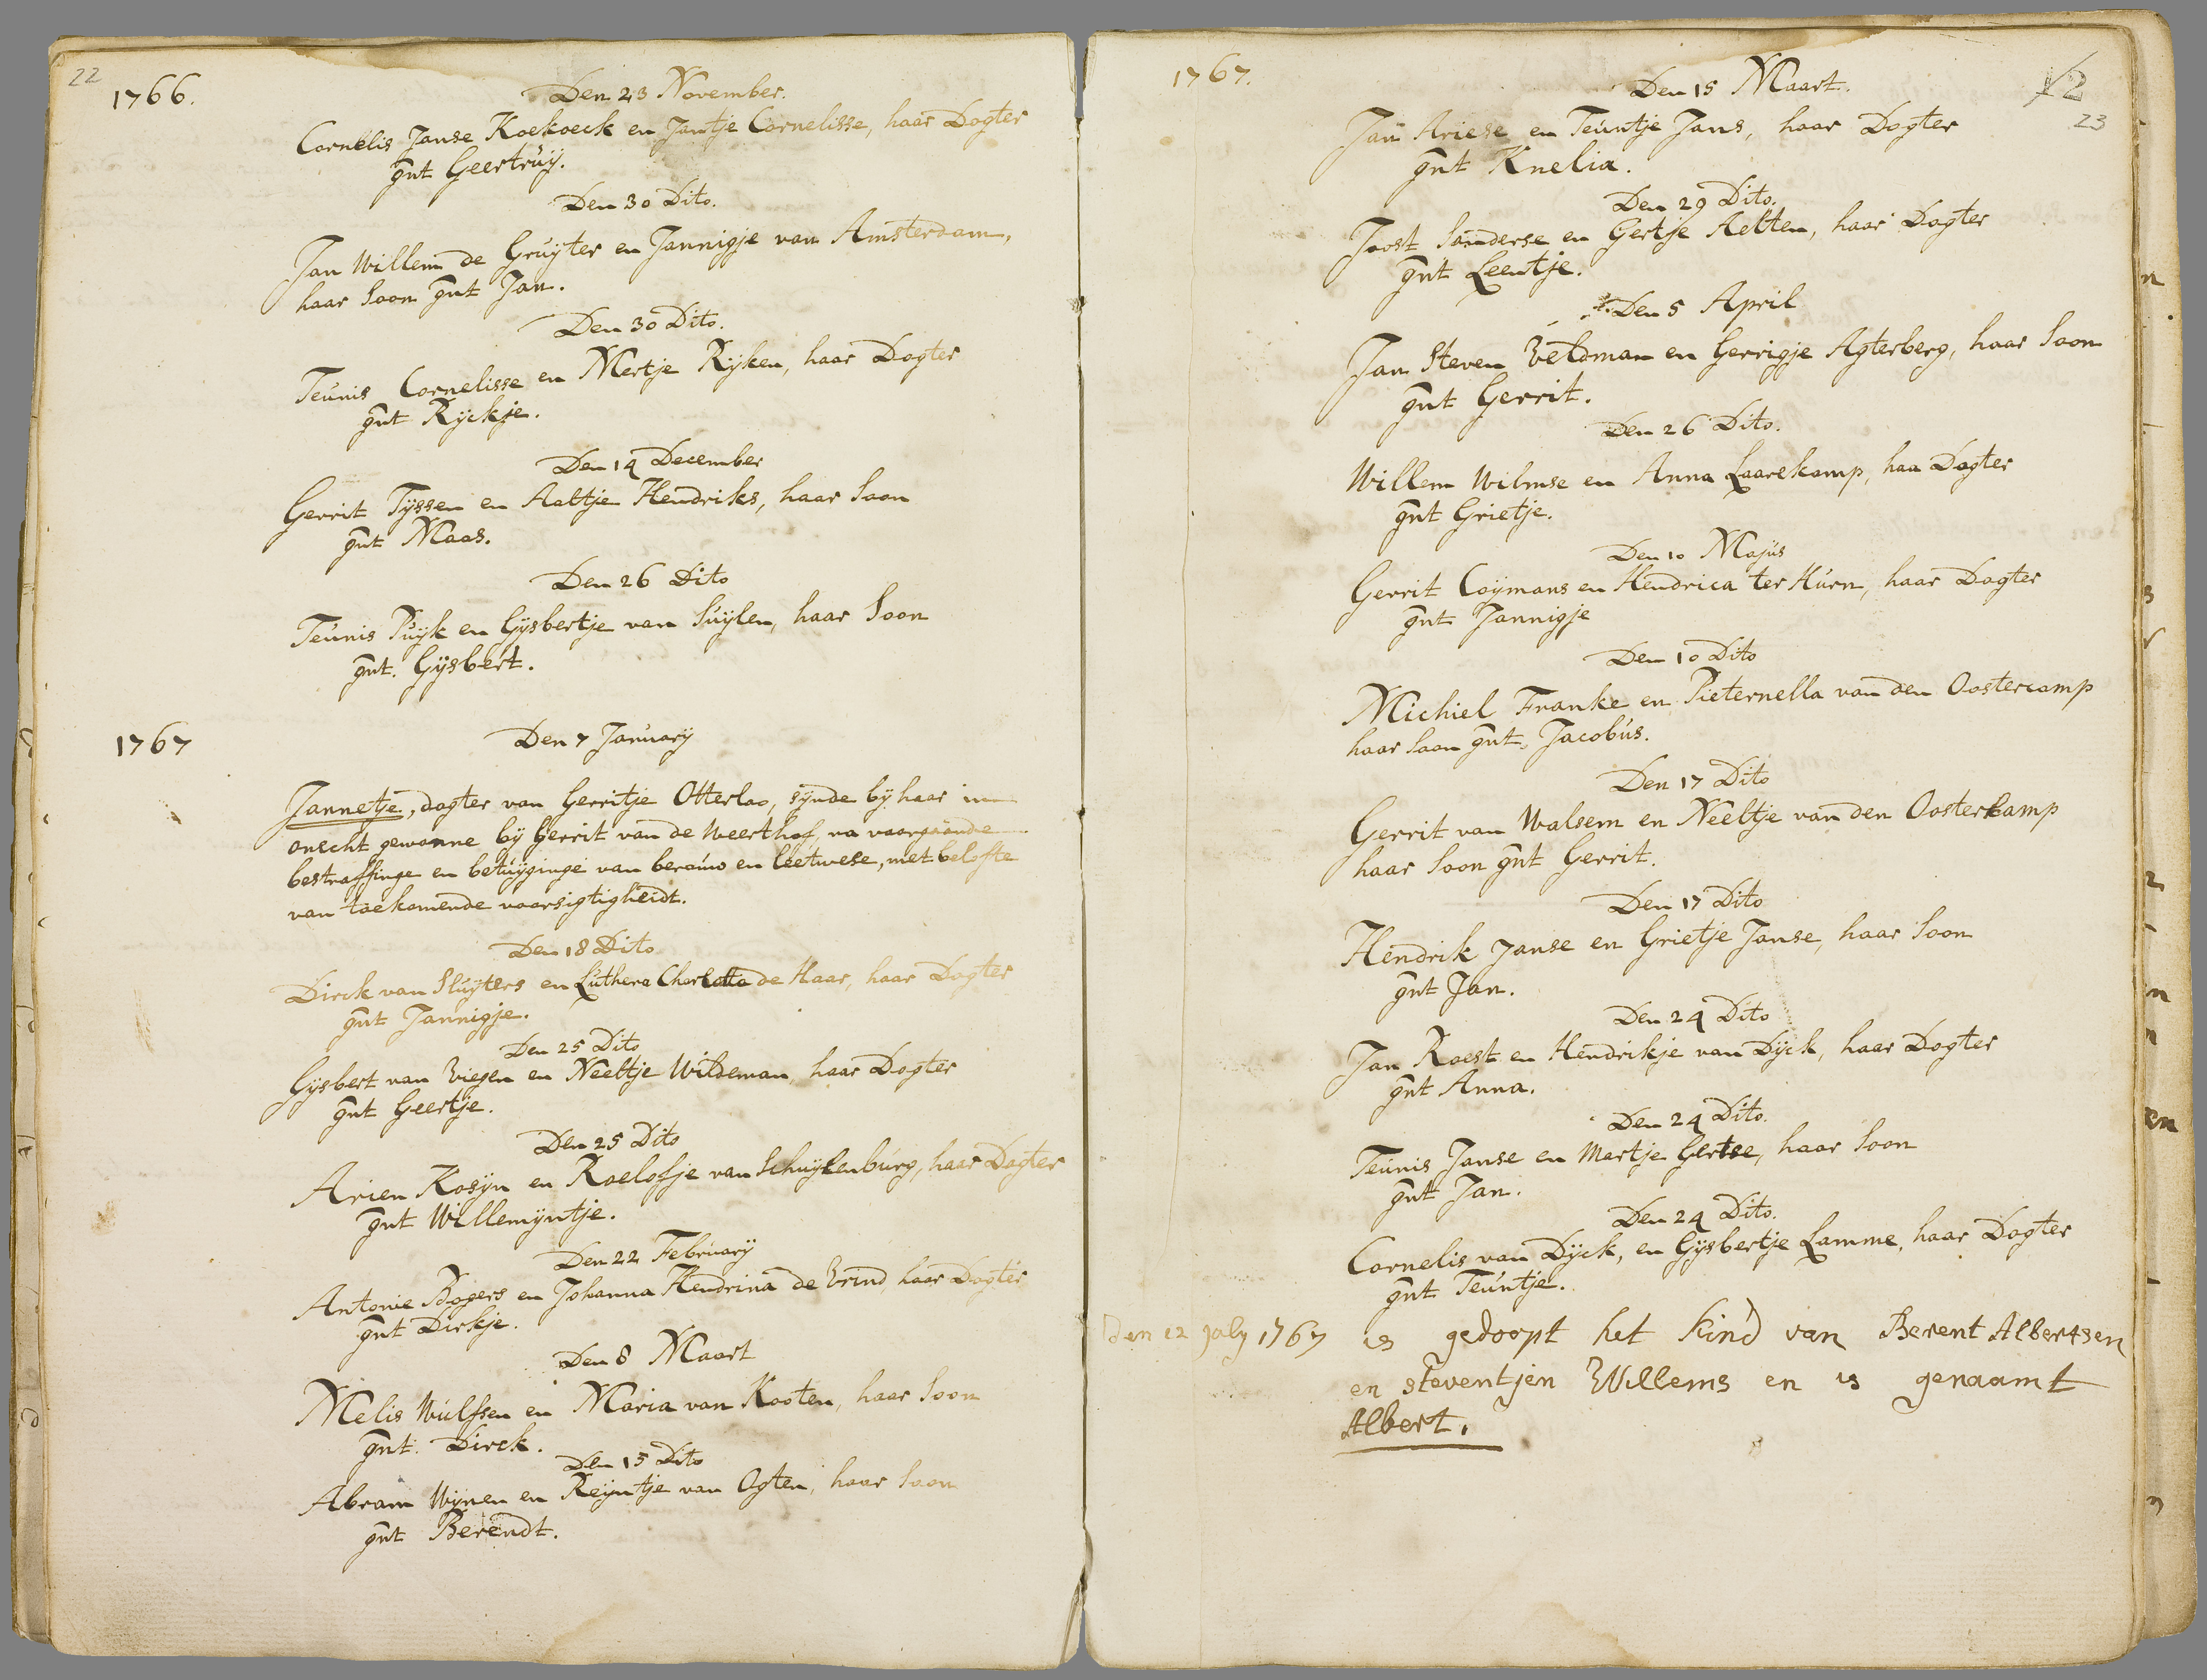 22
1766.
Den 23 November.
Cornelis Janse Koekoeck en Jantje Cornelisse, haar Dogter
gnt Geertruÿ.
Den 30 Dito.
Jan Willem de Gruÿter en Jannigje van Amsterdam,
haar Soon gnt Jan.
Den 30 Dito.
Teunis Cornelisse en Mertje Rijken, haar Dogter
gnt Rijckje.
Den 14 December
Gerrit Tijssen en Aaltje Hendriks, haar Soon
gnt Maas.
Den 26 Dito
Teunis Puijk en Gijsbertje van Suijlen, haar Soon
gnt. Gijsbert.
1767
Den 7 January
Jannetje, dogter van Gerritje Otterloo, sijnde bij haar in
onecht gewonne bij Gerrit van de Weerthof, na voorgaande
bestraffinge en betuijginge van berouw en leetwese, met belofte
van toekomende voorsigtigheidt.
Den 18 Dito
Dirck van Sluijters en Luthera Charlotta de Haar, haar Dogter
gnt Jannigje.
Den 25 Dito
Gijsbert van Viegen en Neeltje Wildeman, haar Dogter
gnt Geertje.
Den 25 Dito
Arien Kosijn en Roelofje van Schuijlenburg, haar Dogter
gnt Willemijntje.
Den 22 February
Antonie Bogers en Johanna Hendrina de Vrind, haar Dogter
gnt Dirkje.
Den 8 Maart
Melis Wulfsen en Maria van Kooten, haar Soon
gnt. Dirck.
Den 15 Dito
Abram Wijnen en Reijntje van Ogten, haar Soon
gnt Berendt.
1767.
12
23
Den 15 Maart.
Jan Ariese en Teuntje Jans, haar Dogter
gnt Knelia.
Den 29 Dito.
Joost Sanderse en Gertje Aelten, haar Dogter
gnt Leentje.
Den 5 April
Jan Steven Veldman en Gerrigje Agterberg, haar Soon
gnt Gerrit.
Den 26 Dito.
Willem Wilmse en Anna Laarekamp, haa Dogter
gnt Grietje.
Den 10 Majus
Gerrit Coijmans en Hendrica ter Hurn, haar Dogter
gnt Jannigje
Den 10 Dito
Michiel Franke en Pieternella van den Oostercamp
haar Soon gnt. Jacobus.
Den 17 Dito
Gerrit van Walsem en Neeltje van den Oosterkamp
haar Soon gnt Gerrit.
Den 17 Dito
Hendrik Janse en Grietje Janse, haar Soon
gnt Jan.
Den 24 Dito
Jan Roest en Hendrikje van Dijck, haar Dogter
gnt Anna.
Den 24 Dito.
Teunis Janse en Martje Gertse, haar Soon
gnt Jan.
Den 24 Dito.
Cornelis van Dijck, en Gijsbertje Lamme, haar Dogter
gnt Teuntje.
Den 12 july 1767 is gedoopt het kind van Berent Albertsen
en steventjen Willems en is genaamt
Albert.